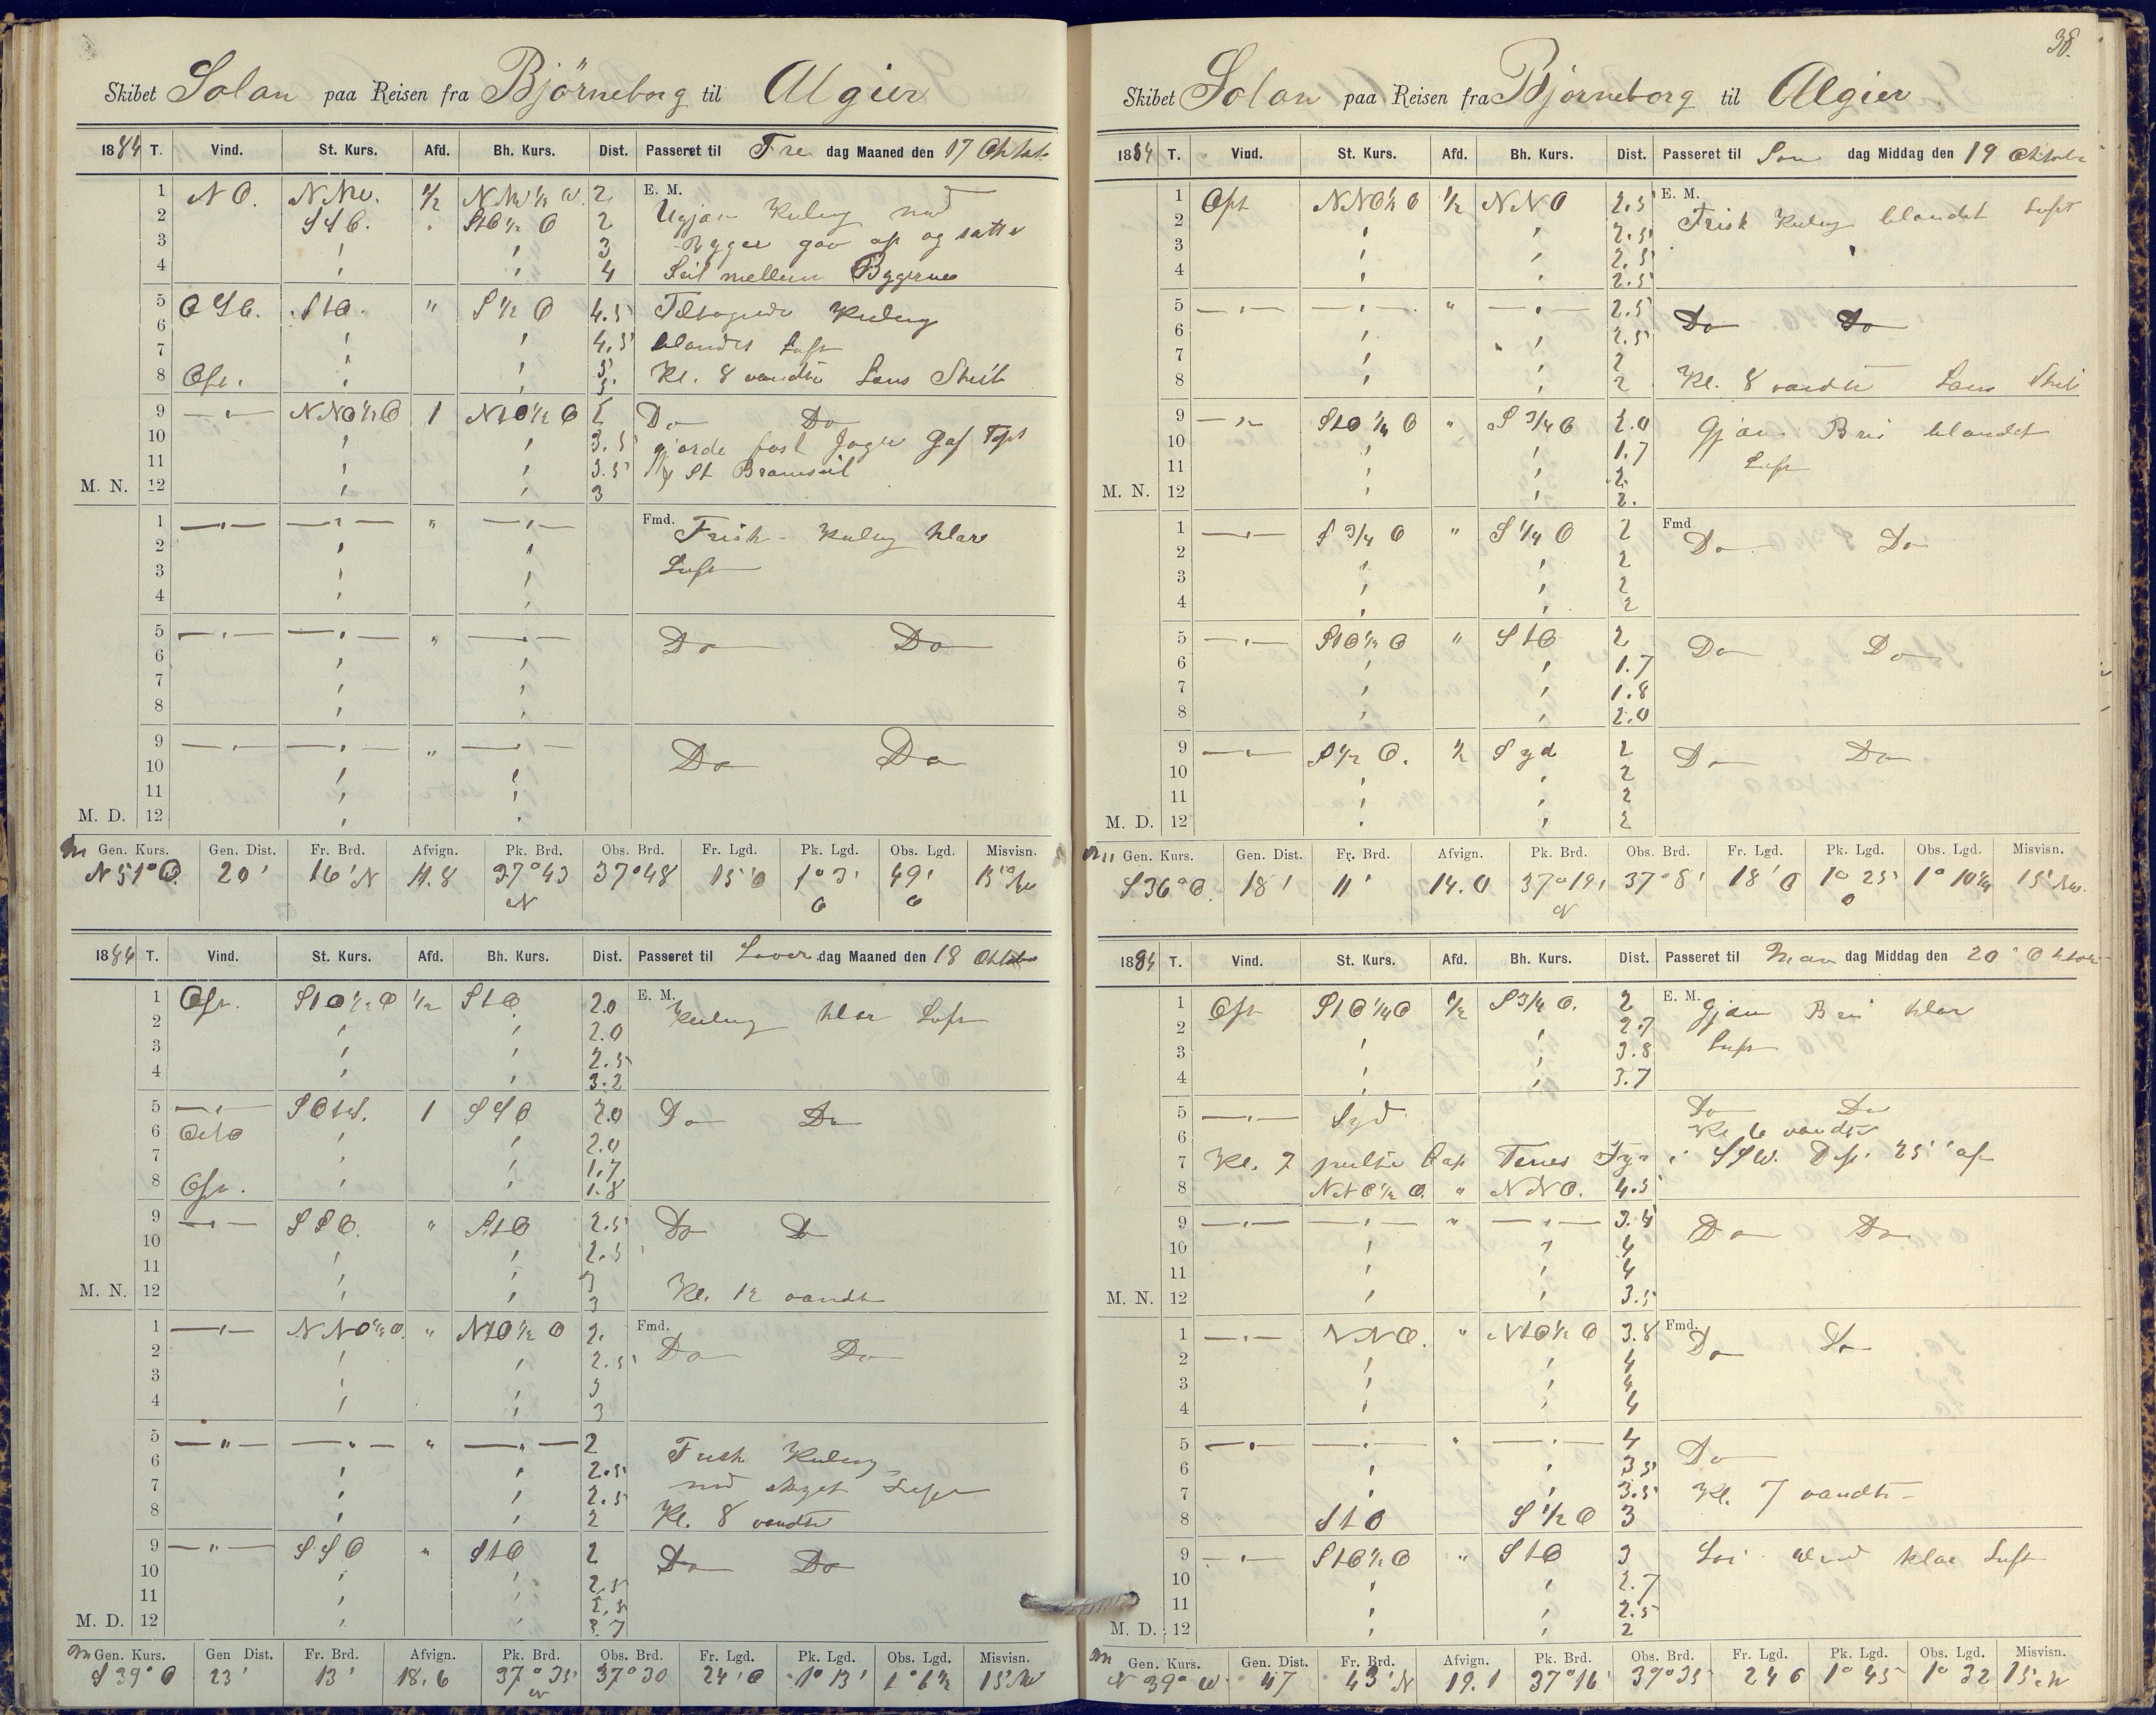 Skibet Solan paa Reisen fra Björneborg til Algier
1884 T. Vind. St. Kurs. Afd. Bh. Kurs. Dist. Passeret til Fre dag Maaned den 17 Oktob
1 NO. NNW. ½ NNW½W. 2 E. M.
2 SSO. StO½O 2 Kuling med
3 3 Bygger gav af og satte
4 4 Seil mellem Byggerne
5 OSO. StO. " S½O 4.5 Kuling
6 4.5 blandet Luft
7 5
8 Ost. 5. Kl. 8 vendte Lens Skib
9 NNO½O 1 NtO½O Do Do
10 3.5 gjorde fast Jager Gaf Tops
11 3.5 St Bramseil
M. N. 12 3
1 " Fmd. Frisk Kuling klar
2 Luft
3
4
5 " Do Do
6
7
8
9 " Do Do
10
11
M. D. 12
Gen. Kurs. Gen. Dist. Fr. Brd. Afvign. Pk. Brd. Obs. Brd. Fr. Lgd. Pk. Lgd. Obs. Lgd. Misvisn.
N 51° O. 20' 16'N 37°43 37°48 15'O 1°3' 49'
N O O
1884 T. Vind. St. Kurs. Afd. Bh. Kurs. Dist. Passeret til Løver dag Maaned den 18 Oktober
1 Ost. StO½O ½ StO. 2.0 E. M. Kuling klar Luft
2 2.0
3 2.5
4 3.2
5 SOtS. 1 SSO 2.0 Do Do
6 OtO 2.0
7 1.7
8 Ost. 1.8
9 SSO. " StO 2.5 Do Do
10 2.5
11 3
M. N. 12 3 Kl. 12 vendte
1 NNO½O. " NtO½O 2. Fmd.
2 2.5 Do Do
3 3
4 3
5 " 2 Frisk Kuling
6 2.5
7 2.5 med skyet Luft
8 2 Kl. 8 vendte
9 SSO " StO 2 Do Do
10 2.5
11 2.5
M. D. 12 2.7
Gen. Kurs. Gen Dist. Fr. Brd. Afvign. Pk. Brd. Obs. Brd. Fr. Lgd. Pk. Lgd. Obs. Lgd. Misvisn.
S 39° O 23' 13' 18.6 37°35' 37°30 24'O 1°13' 1°6½ 15°W
N
38.
Skibet Solan paa Reisen fra Bjorneborg til Algier
1884 T. Vind. St. Kurs. Afd. Bh. Kurs. Dist. Passeret til Søn dag Middag den 19 Oktobr
1 Ost NNO½O ½ NNO 2.5 E. M. Frisk Kuling blandet Luft
2 2.5
3 2.5
4 2.5
5 " 2.5 Do Do
6 2.5
7 2
8 2 Kl. 8 vendte Lens Skib
9 StO¼O " S¾O 2.0 Gjævn Bris blandet
10 1.7 Luft
11 2.
M. N. 12 2.
1 S¾O " S¼O 2 Fmd Do Do
2 2
3 2
4 2
5 StO½O " StO 2 Do Do
6 1.7
7 1.8
8 2.0
9 S½O. ½ Syd 2 Do Do
10 2
11 2
M. D. 12 2
Gen. Kurs. Gen. Dist. Fr. Brd. Afvign. Pk. Brd. Obs. Brd. Fr. Lgd. Pk. Lgd. Obs. Lgd. Misvisn.
S 36° O. 18' 11' 14.0 37°19' 37°8' 18'O 1°25' 1°10¼ 15°W.
N O
1884 T. Vind. St. Kurs. Afd. Bh. Kurs. Dist. Passeret til Man dag Middag den 20 Oktobr
1 Ost StO¼O ½ S¾O. 2 E. M. Gjævn Bris klar
2 2.7 Luft
3 3.8
4 3.7
5 Syd Do Do
6 Kl. 6 vendte
7 Kl. 7 peilte Cap Tenes Fyr i SSW. Dist. 25' af
8 NNO½O. " NNO. 4.5
9 " Do Do
10 4
11 4
M. N. 12 3.5
1 NNO. " NtO½O 3.8 Fmd. Do Do
2 4
3 4
4 4
5 " 4 Do
6 3.5
7 3.5 Kl. 7 vendte
8 StO S½O 3
9 StO½O " StO 3 Loi Vind klar Luft
10 2.7
11 2.5
M. D. 12 2
Gen. Kurs. Gen. Dist. Fr. Brd. Afvign. Pk. Brd. Obs. Brd. Fr. Lgd. Pk. Lgd. Obs. Lgd. Misvisn.
N 39° W 47 43'N 19.1 37°16' 37°35' 24 O 1°45 1°32 15°W